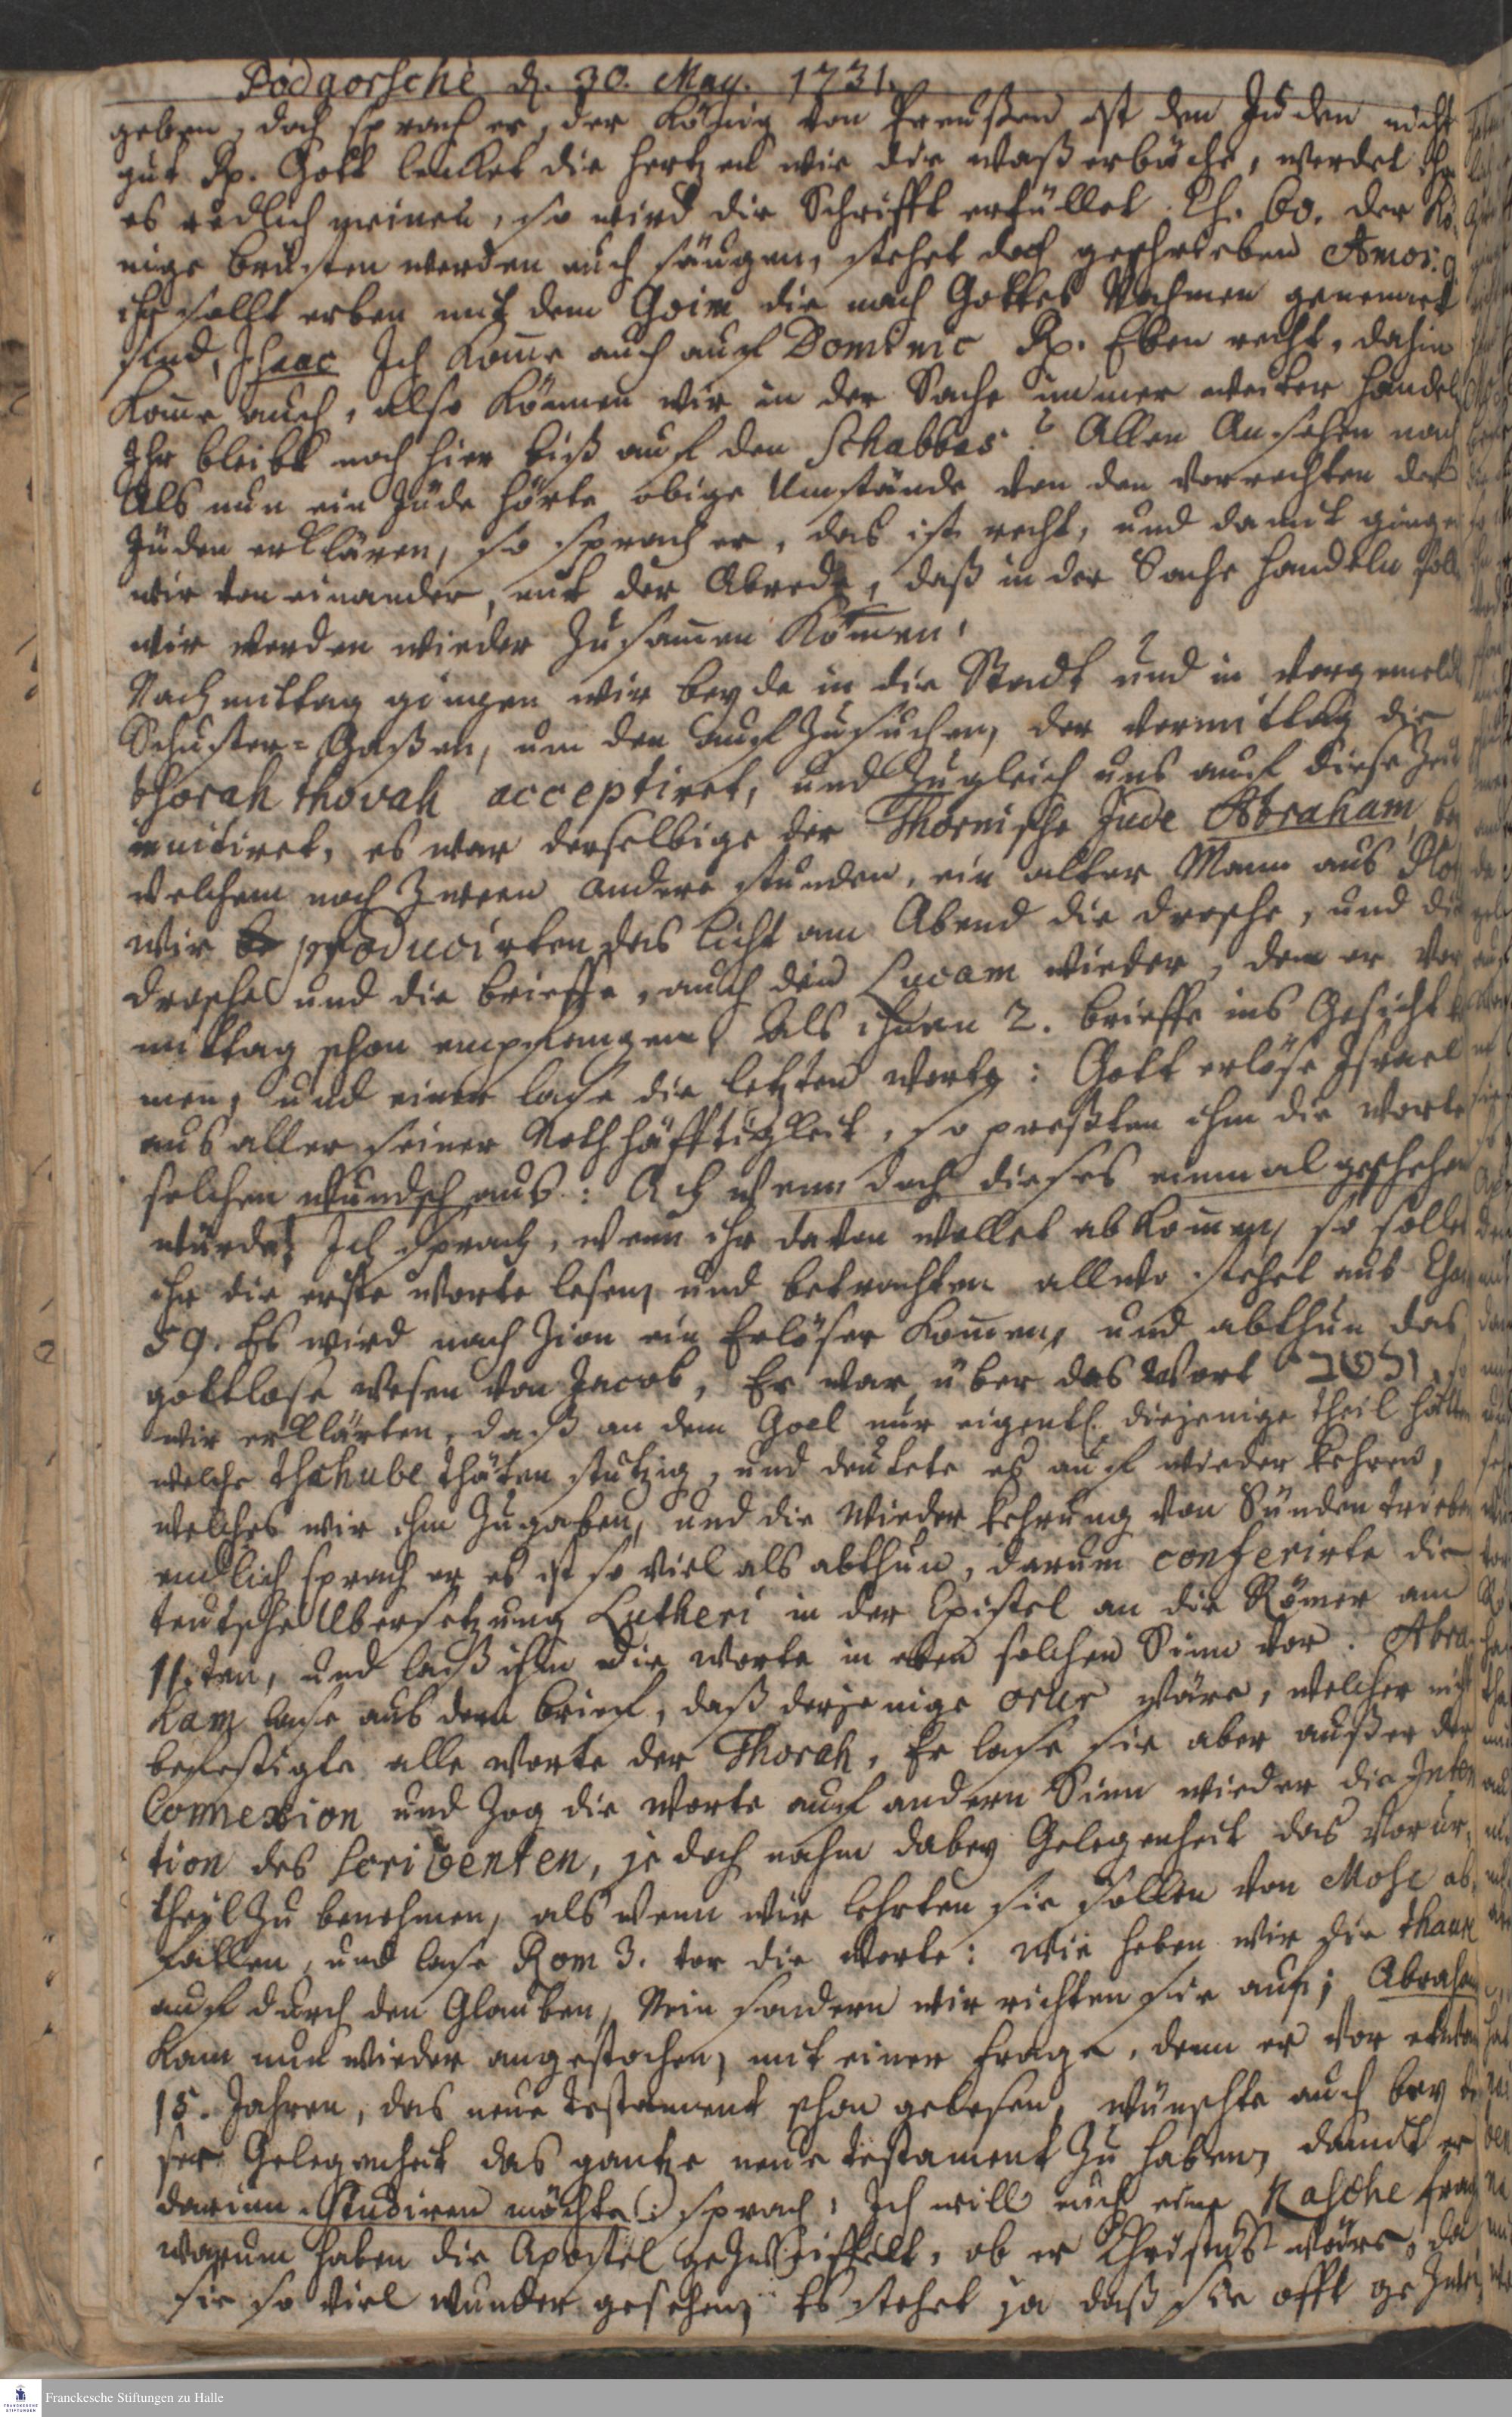 Podgorsche d. 30. May. 1731.
geben, doch sprach er, der König von Preußen ist den Juden nicht
gut Rp. Gott lencket die Hertzen wie die Waßerbäche, werdet ihr
es redlich meinen, so wird die Schrifft erfüllet Es. 60. der Kö-
nige Brüsten werden euch säugen, stehet doch geschrieben Amos. 9
ihr sollt erben mit dem Goim die nach Gottes Nahmen genennet
sind, Isaac Ich kome auch auf Dominic Rp. Eben recht, dahin
kome auch, also können wir in der Sache immer weiter handeln
Ihr bleibt noch hier biß auf den Schabbas? Allen Ansehen nach
Als nun ein Jude hörte obige Umstände von den Vorrechten der
Jüden erklären, so sprach er, das ist recht, und damit ginge
wir von einander, mit der Abrede, daß in der Sache handeln soll
wir werden wieder zusamen komen.
Nachmittag gingen wir beyde in die Stadt und in vorgemeldte
Schuster-Gaßen, um den aufzusuchen, der vormittag die
thorah thovah acceptiret, und zugleich uns auf diese Zeit
invitiret, es war derselbige der Thornische Jude Abraham, bey
welchem noch zween andere stunden, ein alter Mann aus
wir producirten das Licht am Abend die drosche, und die
drosche und die brieffe, auch den Lucam wieder, den er Vor
mittag schon empfangen. Als ihnen 2. brieffe ins Gesicht
men, und einer lase die letzten Worte: Gott erlöse Israel
aus aller seiner Nothhäfftigkeit, so preßten ihm die Worte
solchen Wundsch aus: Ach wenn doch dieses einmal geschehen
würde! Ich sprach, wenn ihr davon wollet abkomen, so sollet
ihr die erste Worte lesen, und betrachten allwo stehet aus Esa
59. Es wird nach Zion ein Erlöser komen, und abthun das
gottlose Wesen von Jacob, Er war über das Wort ולשבי, so
wir erklärten, daß an dem Goel nur eigentl. diejenige theil hätten
welche thschube thäten stutzig, und deutete es auf wieder kehren,
welches wir ihm zugaben, und die Wieder kehrung von Sünden trieben
endlich sprach er es ist so viel als abthun, darum conferirte die
teutsche Ubersetzung Lutheri in der Epistel an die Römer am
11.ten, und laß ihm die Worte in eben solchen Sinn vor. Abra-
ham lase aus dem brief, daß derjenige orur wäre, welcher nicht
befestigte alle Worte der Thorah, Er lase sie aber außer der
Connexion und zog die Worte auf andern Sinn wieder die Inten
tion des Scribenten, jedoch nahm dabey Gelegenheit das Vorur-
theyl zu benehmen, als wenn wir lehrten sie sollen von Mose ab-
fallen, und lase Rom 3. vor die Worte: Wie heben wir die thaure
auf durch den Glauben, Nein sondern wir richten sie auf; Abraham
kam nun wieder angestochen, mit einer frage, denn er vor etwan
15. Jahren, das neue testament schon gelesen, wünschte auch bey die
ser Gelegenheit das gantze neue testament zu haben, damit er
darinn studiren möchte: sprach, Ich will euch eine Kasche frage
warum haben die Apostel gezweiffelt, ob er Christus wäre, da
sie so viel wunder gesehen, Es stehet ja daß sie offt gezwei
Franckesche Stiftungen zu Halle